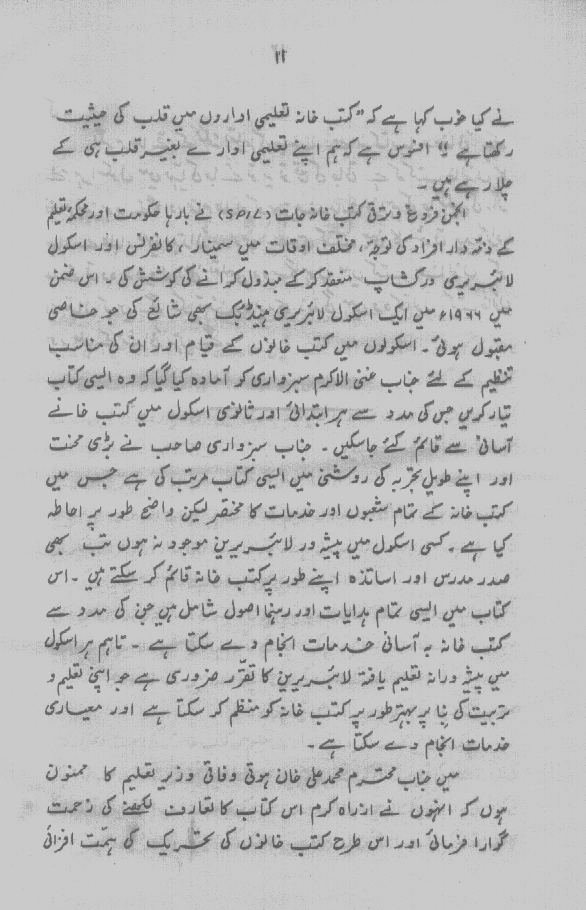 ۱۱
نے کیا خوب کہا ہے کہ "کتب خانہ تعلیمی اداروں میں قلب کی حیثیت
رکھتا ہے"؛ افسوس ہے کہ ہم اپنے تعلیمی ادارے بغیر قلب ہی کے
چلا رہے ہیں۔
انجمن فروغ و ترقی کتب خانہ جات (SPIL) نے بارہا حکومت اور محکمۂ تعلیم
کے ذمہ دار افراد کی توجہ، مختلف اوقات میں سمینار، کانفرنس اور اسکول
لائبریری ورکشاپ، منعقد کرکے مبذول کرانے کی کوشش کی۔ اس ضمن
میں ۱۹۶۶ء میں ایک اسکول لائبریری ہینڈبک بھی شائع کی جو خاصی
مقبول ہوئی۔ اسکولوں میں کتب خانوں کے قیام اور ان کی مناسب
تنظیم کے لئے جناب غنی الاکرم سبزواری کو آمادہ کیا گیا کہ وہ ایسی کتاب
تیار کریں جس کی مدد سے ہر ابتدائی اور ثانوی اسکول میں کتب خانے
آسانی سے قائم کئے جاسکیں۔ جناب سبزواری صاحب نے بڑی محنت
اور اپنے طویل تجربہ کی روشنی میں ایسی کتاب مرتب کی ہے جس میں
کتب خانہ کے تمام شعبوں اور خدمات کا مختصر لیکن واضح طور پر احاطہ
کیا ہے۔ کسی اسکول میں پیشہ ور لائبریرین موجود نہ ہوں تب بھی
صدر مدرس اور اساتذہ اپنے طور پر کتب خانہ قائم کر سکتے ہیں۔ اس
کتاب میں ایسی تمام ہدایات اور رہنما اصول شامل ہیں جن کی مدد سے
کتب خانہ بہ آسانی خدمات انجام دے سکتا ہے۔ تاہم ہر اسکول
میں پیشہ ورانہ تعلیم یافتہ لائبریرین کا تقرر ضروری ہے جو اپنی تعلیم و
تربیت کی بنا پر بہتر طور پر کتب خانہ کو منظم کر سکتا ہے اور معیاری
خدمات انجام دے سکتا ہے۔
میں جناب محترم محمد علی خان ہوتی وفاقی وزیر تعلیم کا ممنون
ہوں کہ انہوں نے ازراہ کرم اس کتاب کا تعارف لکھنے کی زحمت
گوارا فرمائی اور اس طرح کتب خانوں کی تحریک کی ہمت افزائی